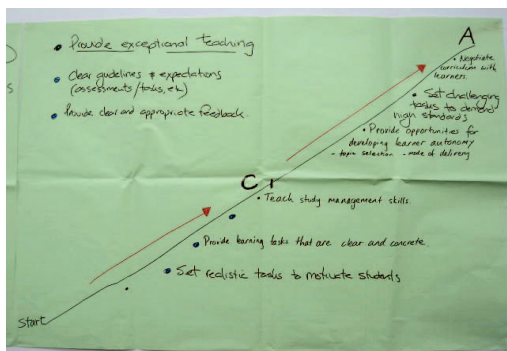 Provide exceptional teaching
Clear guidelines & expectations
(assessments/tasks, etc)
Provide clear and appropriate feedback
s
A
Negotiate
curriculum with
learners.
Set challenging
tasks to demand
high standards
Provide opportunities for
developing learner autonomy
- topic selection - mode of delivery
C
Teach study management skills
Provide learning tasks that are clear and concrete
Set realistic tasks to motivate students
Start